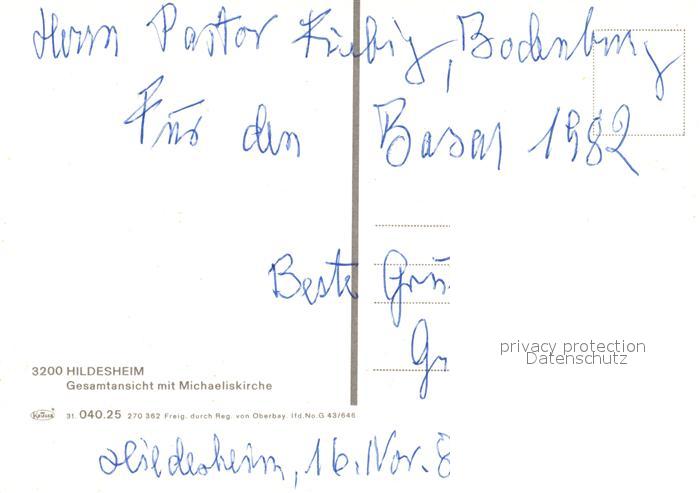 Herrn Pastor Kiebig, Bodenburg
Für den Basar 1982
Beste Grü
G
privacy protection
Datenschutz
3200 HILDESHEIM
Gesamtansicht mit Michaeliskirche
Krüger 31. 040.25 270 362 Freig. durch Reg. von Oberbay. lfd.No.G 43/646
Hildesheim, 16. Nov. 8